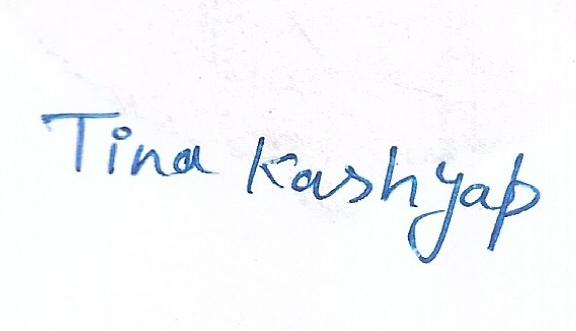 Tina Kashyap